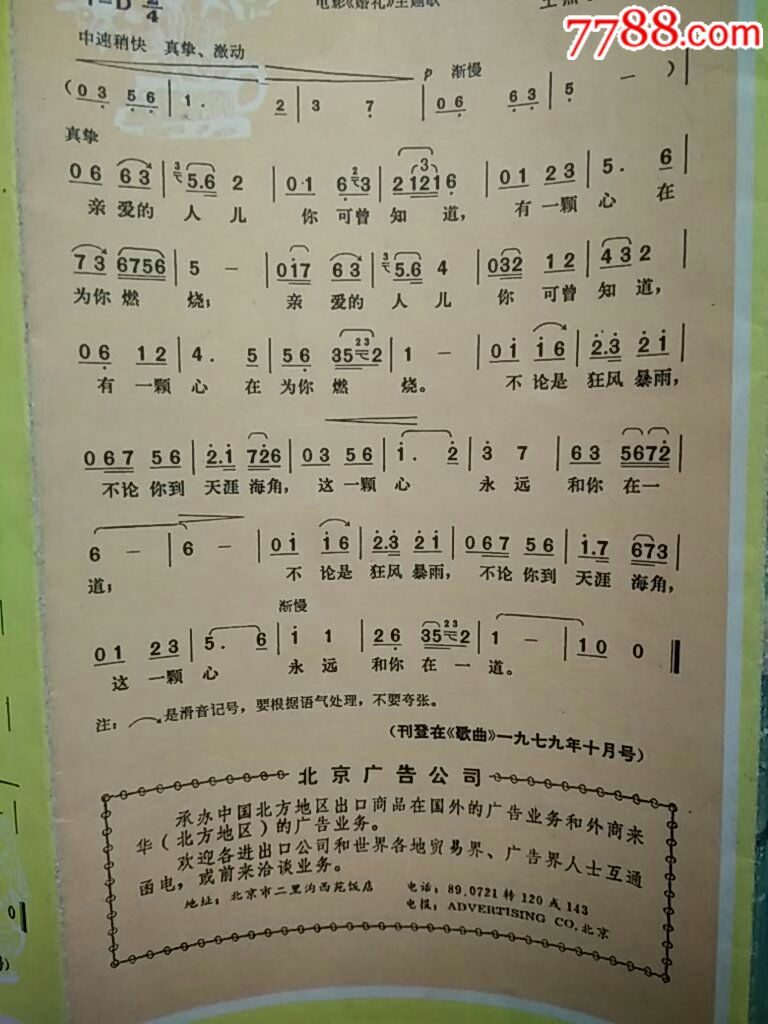 1=D 2/4
电影《婚礼》主题歌
7788.com
中速稍快 真挚、激动
p 渐慢
(0 3 5 6 | 1 . 2 | 3 7 | 0 6 6 3 | 5 — ) |
真挚
0 6 6 3 | 5.6 2 | 0 1 6 3 | 2 1 2 1 6 | 0 1 2 3 | 5 . 6 |
亲 爱的 人 儿 你 可曾 知 道, 有 一颗 心 在
7 3 6756 | 5 — | 017 6 3 | 5.6 4 | 032 1 2 | 4 3 2 |
为你 燃 烧; 亲 爱的 人 儿 你 可曾 知 道,
0 6 1 2 | 4 . 5 | 5 6 35 2 | 1 — | 0 1 1 6 | 2.3 2 1 |
有 一颗 心 在 为你 燃 烧。 不 论是 狂风 暴雨,
0 6 7 5 6 | 2.1 726 | 0 3 5 6 | 1 . 2 | 3 7 | 6 3 5672 |
不论 你到 天涯 海角, 这 一颗 心 永 远 和你 在一
6 — | 6 — | 0 1 1 6 | 2.3 2 1 | 0 6 7 5 6 | 1.7 673 |
道; 不 论是 狂风 暴雨, 不论 你到 天涯 海角,
渐慢
0 1 2 3 | 5 . 6 | 1 1 | 2 6 35 2 | 1 — | 1 0 0 ‖
这 一颗 心 永 远 和你 在 一 道。
注: 是滑音记号,要根据语气处理,不要夸张。
(刊登在《歌曲》一九七九年十月号)
北京广告公司
承办中国北方地区出口商品在国外的广告业务和外商来
华(北方地区)的广告业务。
欢迎各进出口公司和世界各地贸易界、广告界人士互通
函电,或前来洽谈业务。
地址:北京市二里沟西苑饭店
电话:89.0721转120或143
电报:ADVERTISING CO.北京